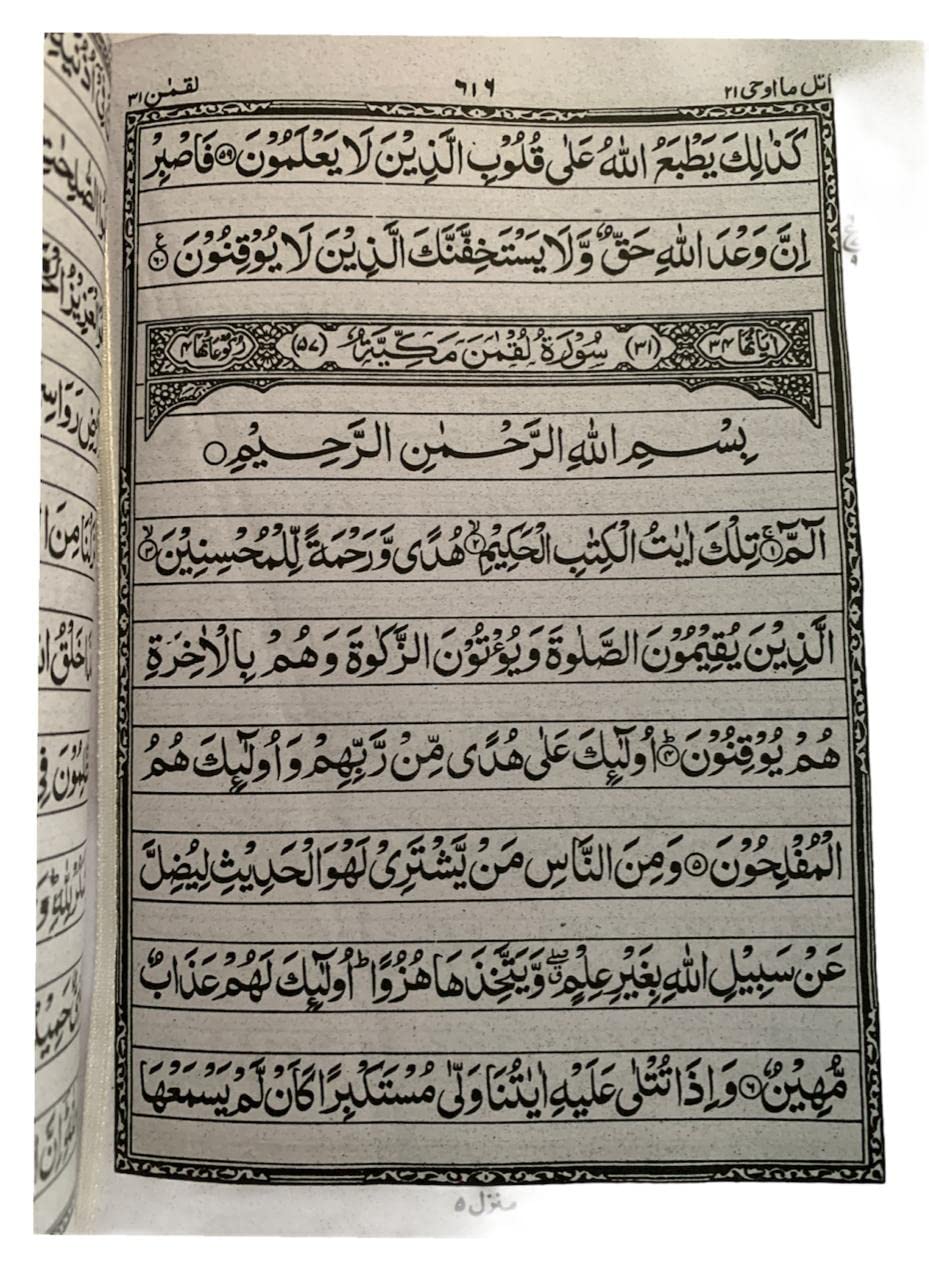 اتل ما اوحی ۲۱ ٦١٦ لقمٰن ۳۱
كَذٰلِكَ يَطْبَعُ اللّٰهُ عَلٰى قُلُوْبِ الَّذِيْنَ لَا يَعْلَمُوْنَ ﴿۵۹﴾ فَاصْبِرْ
اِنَّ وَعْدَ اللّٰهِ حَقٌّ وَّلَا يَسْتَخِفَّنَّكَ الَّذِيْنَ لَا يُوْقِنُوْنَ ﴿۶۰﴾ ع
اٰيَاتُهَا ۳۴ (۳۱) سُوْرَةُ لُقْمٰنَ مَكِّيَّةٌ (۵۷) رُكُوْعَاتُهَا ۴
بِسْمِ اللّٰهِ الرَّحْمٰنِ الرَّحِيْمِ ○
الٓمّٓ ﴿۱﴾ تِلْكَ اٰيٰتُ الْكِتٰبِ الْحَكِيْمِ ﴿۲﴾ هُدًى وَّرَحْمَةً لِّلْمُحْسِنِيْنَ ﴿۳﴾
الَّذِيْنَ يُقِيْمُوْنَ الصَّلٰوةَ وَيُؤْتُوْنَ الزَّكٰوةَ وَهُمْ بِالْاٰخِرَةِ
هُمْ يُوْقِنُوْنَ ﴿۴﴾ اُولٰٓئِكَ عَلٰى هُدًى مِّنْ رَّبِّهِمْ وَاُولٰٓئِكَ هُمُ
الْمُفْلِحُوْنَ ﴿۵﴾ وَمِنَ النَّاسِ مَنْ يَّشْتَرِيْ لَهْوَ الْحَدِيْثِ لِيُضِلَّ
عَنْ سَبِيْلِ اللّٰهِ بِغَيْرِ عِلْمٍ وَّيَتَّخِذَهَا هُزُوًا ؕ اُولٰٓئِكَ لَهُمْ عَذَابٌ
مُّهِيْنٌ ﴿۶﴾ وَاِذَا تُتْلٰى عَلَيْهِ اٰيٰتُنَا وَلّٰى مُسْتَكْبِرًا كَاَنْ لَّمْ يَسْمَعْهَا
منزل ۵